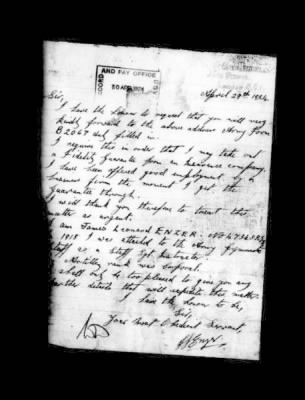 AND PAY OFFICE
30 APR 1924
RECORD
April 29th 1924
Sir,
I have the honor to request that you will very
kindly forward to the above address Army Form
B 2067 duly filled in.
I require this in order that I may take out
a Fidelity Guarantee from an Insurance company.
I have been offered good employment by a
business from the moment I get the
Guarantee through.
I will thank you therefore to treat this
matter as urgent.
I am James Leonard ENZER
1918 I was attached to the Army Gymnastic
Staff as a Staff Sgt Instructor
rank was Corporal.
I shall only be too pleased to give you any
further details that will expedite this matter
I have the honor to be,
Sir,
Your Most Obedient Servant,